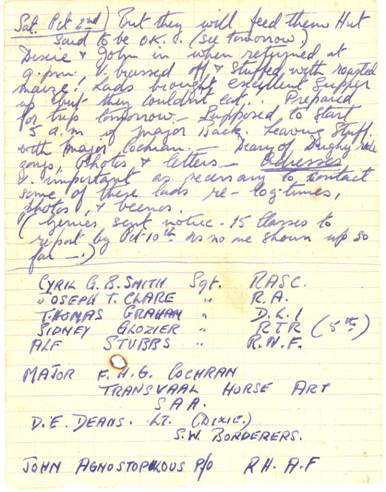 Sat. Oct 2nd) But they will feed them Hut
said to be O.K. (see tomorrow)
Dixie & John in when returned at
9.p.m, v. brassed off & stuffed with roasted
maize. Lads brought excellent supper
up but they couldn't eat. Prepared
for trip tomorrow. Supposed to start
5 a.m if Major Back. Leaving stuff
with Major Cochran. — Diary of
songs, photos & letters — Addresses
v. important as necessary to contact
some of these lads re - log-times,
photos, & beenos.
(Jerries sent notice - 15 classes to
report by Oct 10th As no one shown up so
far —.)
CYRIL G. B. SMITH Sgt. RASC.
JOSEPH T. CLARE " R.A.
THOMAS GRAHAM " D.L.I
SIDNEY GLOZIER " RTR (5th)
ALF STUBBS " R.N.F.
MAJOR F. H. G. COCHRAN
TRANSVAAL HORSE ART
SAA.
D. E. DEANS. Lt. (DIXIE.)
S.W. BORDERERS.
JOHN AGNOSTOPULOUS P/O RH. A.F